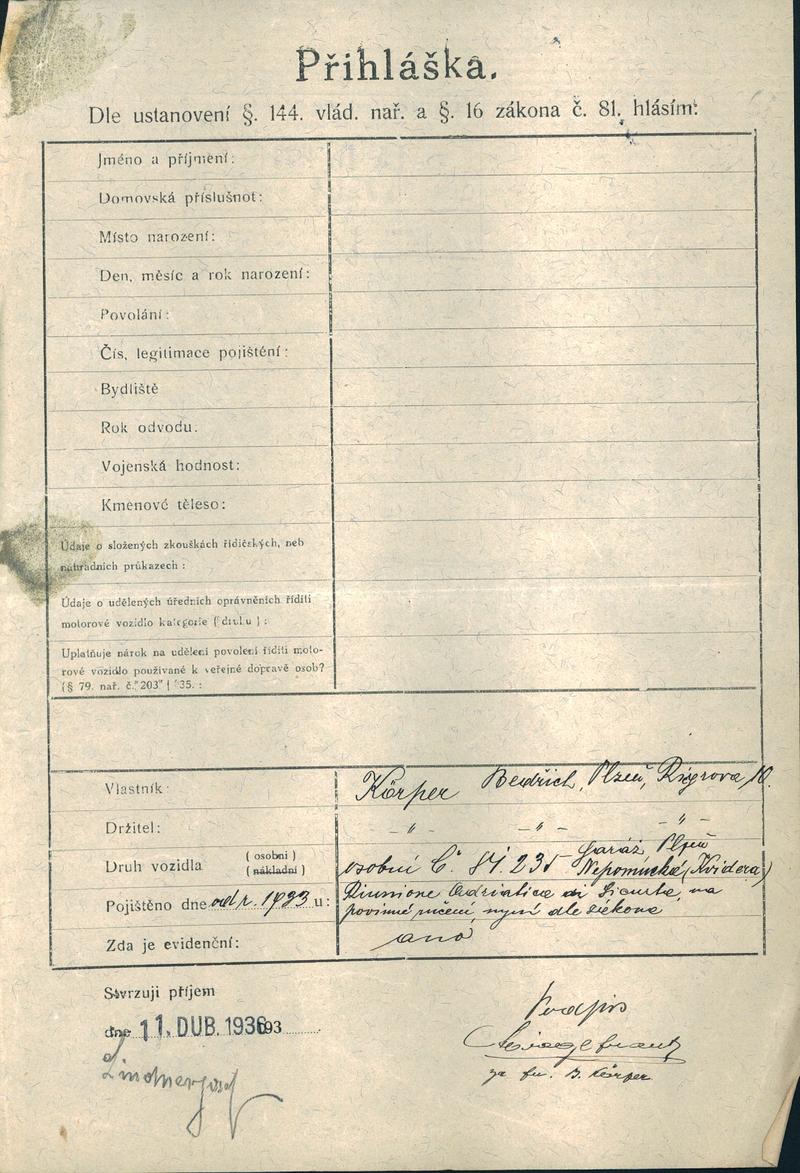 Přihláška.
Dle ustanovení §. 144. vlád. nař. a §. 16 zákona č. 81, hlásím:
Jméno a příjmení:
Domovská příslušnot:
Místo narození:
Den, měsíc a rok narození:
Povolání:
Čís, legitimace pojištění:
Bydliště
Rok odvodu:
Vojenská hodnost:
Kmenové těleso:
Údaje o složených zkouškách řidičských, neb
náhradních průkazech:
Údaje o udělených úředních oprávněních říditi
motorové vozidlo kategorie (druhu):
Uplatňuje nárok na udělení povolení říditi moto-
rové vozidlo používané k veřejné dopravě osob?
(§ 79. nař. č. "203" | "35. :
Vlastník: Körper Bedřich, Plzeň, Riegrova 10.
Držitel: - " - - " - - " -
Druh vozidla (osobní) (nákladní) osobní Č. 84.235 Garáž Plzeň Nepomucká (Kvidera)
Pojištěno dne od r. 1933 u: Riunione Adriatica di Sicurta, na
povinné ručení, nyní dle zákona
Zda je evidenční: ano
Stvrzuji příjem
dne 11. DUB. 1936 193
Podpis
za fu. B. Körper